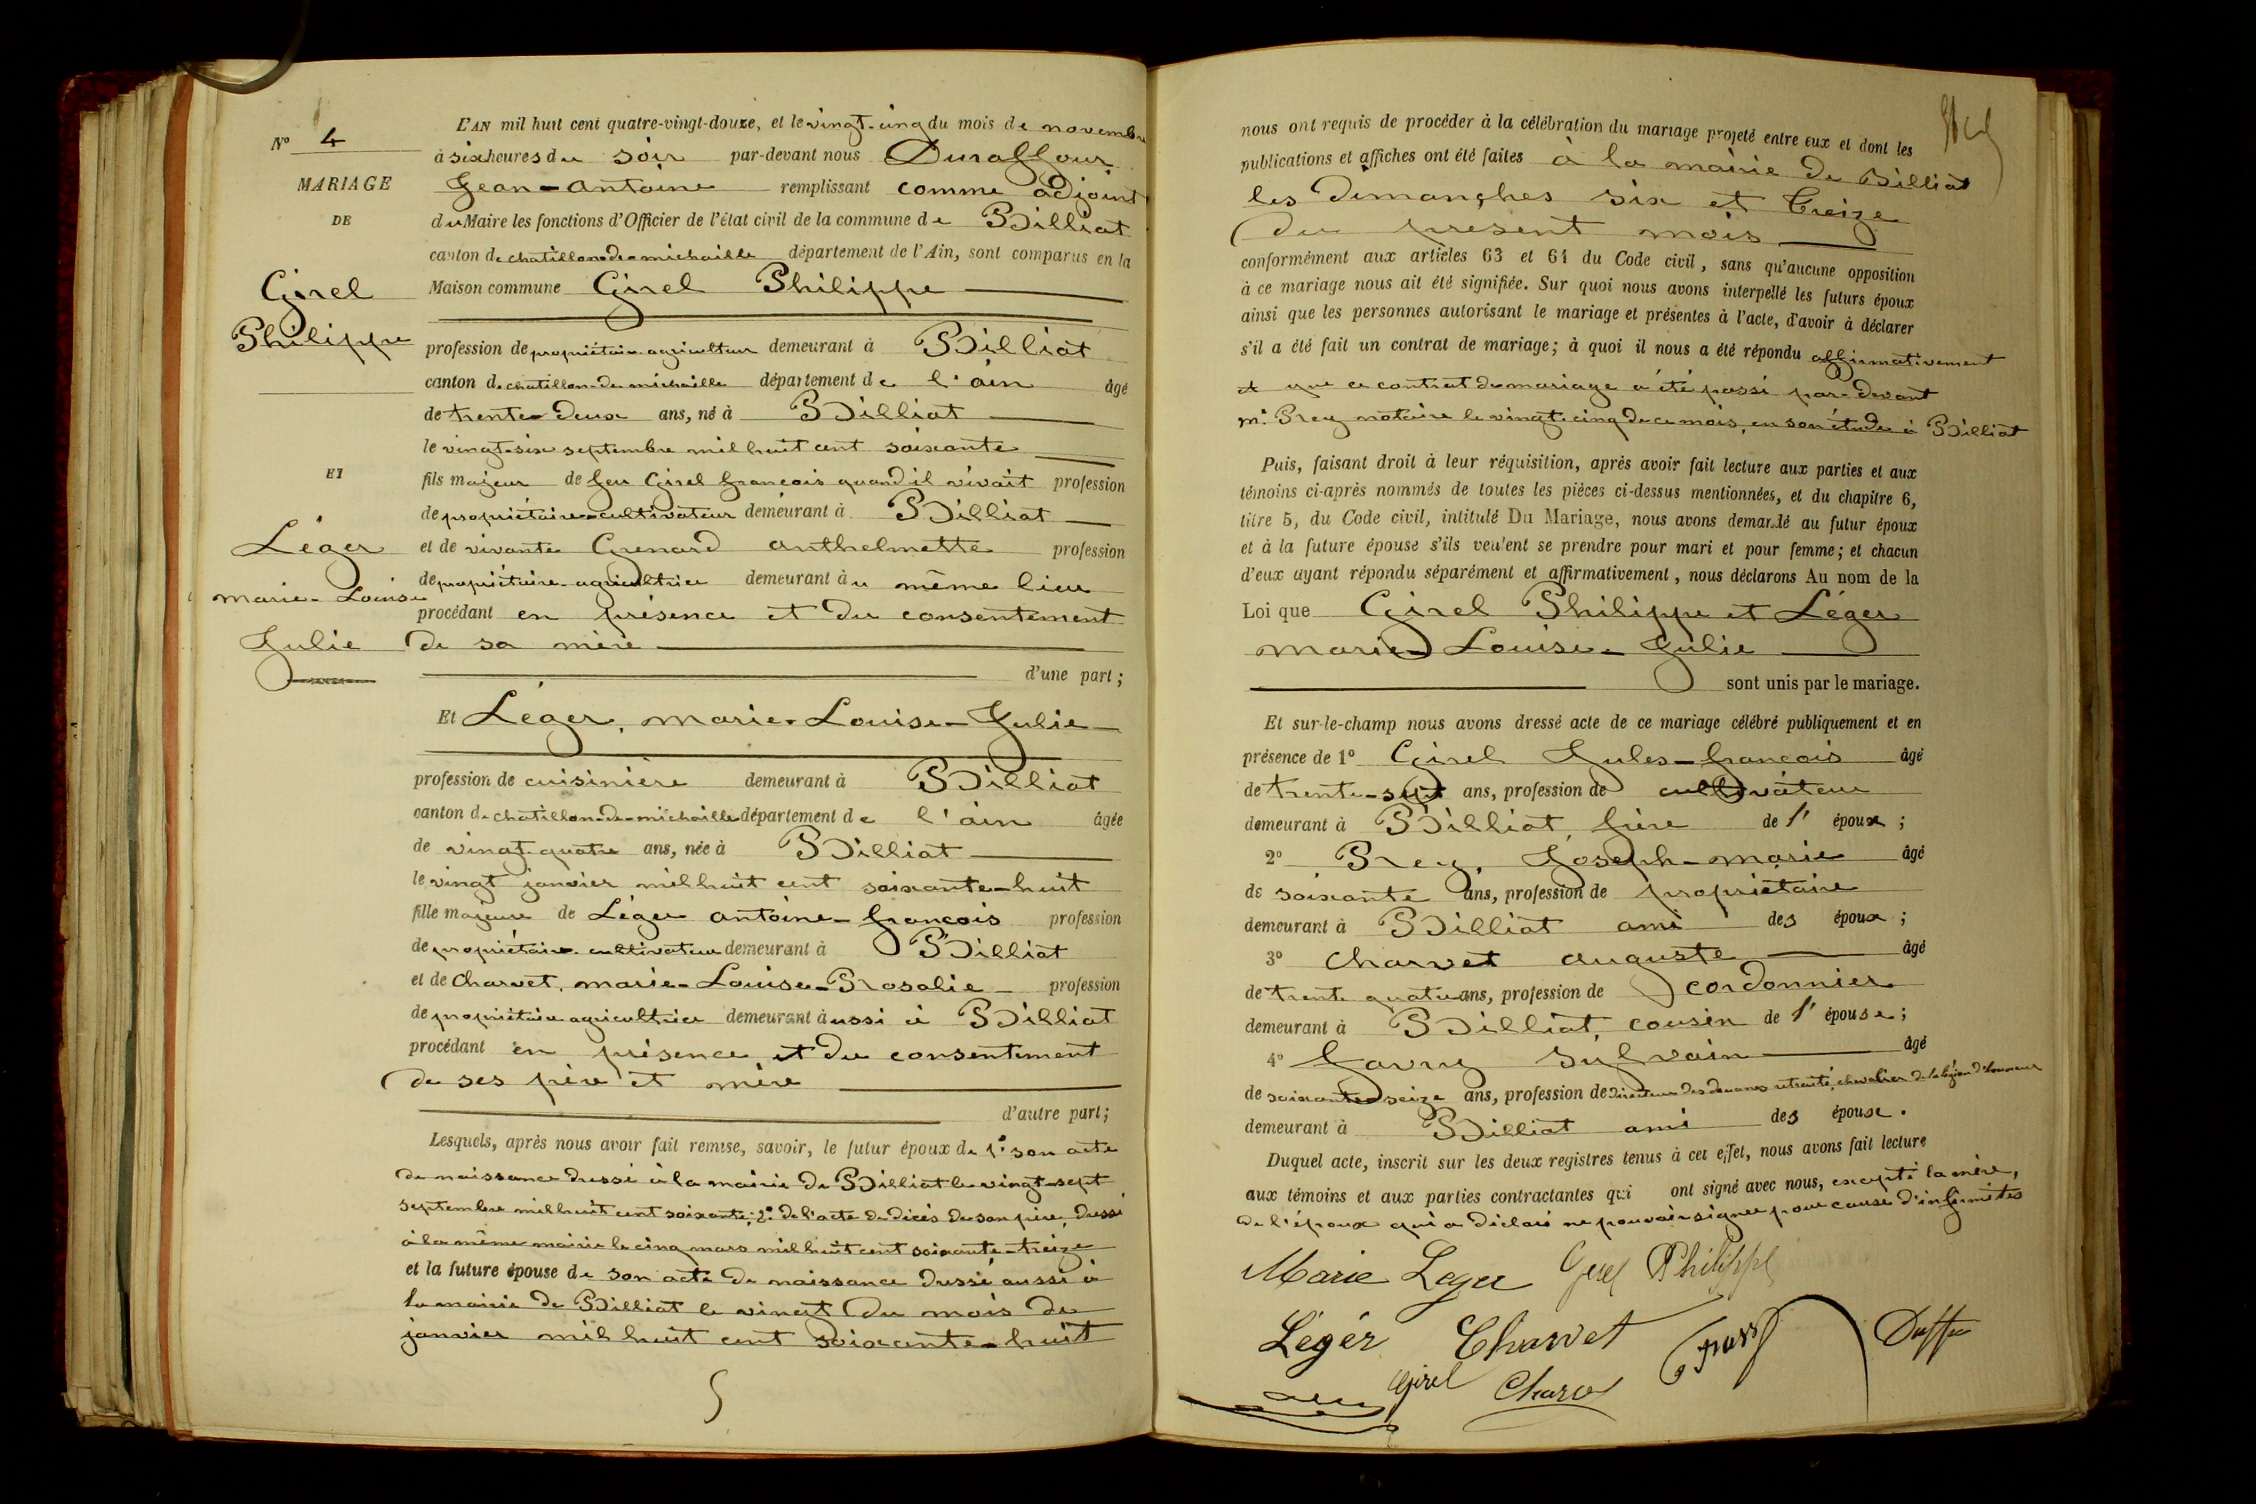 N° 4
MARIAGE
DE
Girel
Philippe
ET
Léger
marie-Louise
Julie
L'AN mil huit cent quatre-vingt-douze, et le vingt-cinq du mois de novembre
à six heures du soir par-devant nous Duraffour
Jean-antoine remplissant comme adjoint
du Maire les fonctions d'Officier de l'état civil de la commune de Billiat
canton de chatillon-de-michaille département de l'Ain, sont comparus en la
Maison commune Girel Philippe
profession de propriétaire-agriculteur demeurant à Billiat
canton de chatillon-de-michaille département de l'ain âgé
de trente-deux ans, né à Billiat
le vingt-six septembre mil huit cent soixante
fils majeur de feu Girel françois quand il vivait profession
de propriétaire-cultivateur demeurant à Billiat
et de vivante Grenard anthelmette profession
de propriétaire-agricultrice demeurant au même lieu
procédant en présence et du consentement
de sa mère
d'une part ;
Et Léger, marie-Louise-Julie
profession de cuisinière demeurant à Billiat
canton de chatillon-de-michaille département de l'ain âgée
de vingt-quatre ans, née à Billiat
le vingt janvier mil huit cent soixante-huit
fille majeure de Léger antoine-françois profession
de propriétaire-cultivateur demeurant à Billiat
et de Charvet, marie-Louise-Rosalie profession
de propriétaire agricultrice demeurant aussi à Billiat
procédant en présence et du consentement
de ses père et mère
d'autre part ;
Lesquels, après nous avoir fait remise, savoir, le futur époux de 1° son acte
de naissance dressé à la mairie de Billiat le vingt-sept
septembre mil huit cent soixante; 2° de l'acte de décès de son père, dressé
à la même mairie le cinq mars mil huit cent soixante-treize
et la future épouse de son acte de naissance dressé aussi à
la mairie de Billiat le vingt du mois de
janvier mil huit cent soixante-huit
nous ont requis de procéder à la célébration du mariage projeté entre eux et dont les
publications et affiches ont été faites à la mairie de Billiat
les dimanches six et treize
du present mois
conformément aux articles 63 et 64 du Code civil, sans qu'aucune opposition
à ce mariage nous ait été signifiée. Sur quoi nous avons interpellé les futurs époux
ainsi que les personnes autorisant le mariage et présentes à l'acte, d'avoir à déclarer
s'il a été fait un contrat de mariage; à quoi il nous a été répondu affirmativement
et que ce contrat de mariage a été passé par-devant
me Prey notaire le vingt-cinq de ce mois, en son étude à Billiat
Puis, faisant droit à leur réquisition, après avoir fait lecture aux parties et aux
témoins ci-après nommés de toutes les pièces ci-dessus mentionnées, et du chapitre 6,
titre 5, du Code civil, intitulé Du Mariage, nous avons demandé au futur époux
et à la future épouse s'ils veulent se prendre pour mari et pour femme; et chacun
d'eux ayant répondu séparément et affirmativement, nous déclarons Au nom de la
Loi que Girel Philippe et Léger
marie-Louise-Julie
sont unis par le mariage.
Et sur-le-champ nous avons dressé acte de ce mariage célébré publiquement et en
présence de 1° Girel Jules-françois âgé
de trente-sept ans, profession de cultivateur
demeurant à Billiat, frère de l' époux ;
2° Prey, Joseph-marie âgé
de soixante ans, profession de propriétaire
demeurant à Billiat ami des époux ;
3° Charvet auguste âgé
de trente quatre ans, profession de cordonnier
demeurant à Billiat cousin de l' épouse ;
4° Sylvain âgé
de soixante-seize ans, profession de directeur des douanes retraité, chevalier de la légion d'honneur
demeurant à Billiat ami des époux.
Duquel acte, inscrit sur les deux registres tenus à cet effet, nous avons fait lecture
aux témoins et aux parties contractantes qui ont signé avec nous, excepté la mère,
de l'époux qui a déclaré ne pouvoir signer pour cause d'infirmités
Marie Leger Girel Philippe
Légér Charvet
Girel Charvet